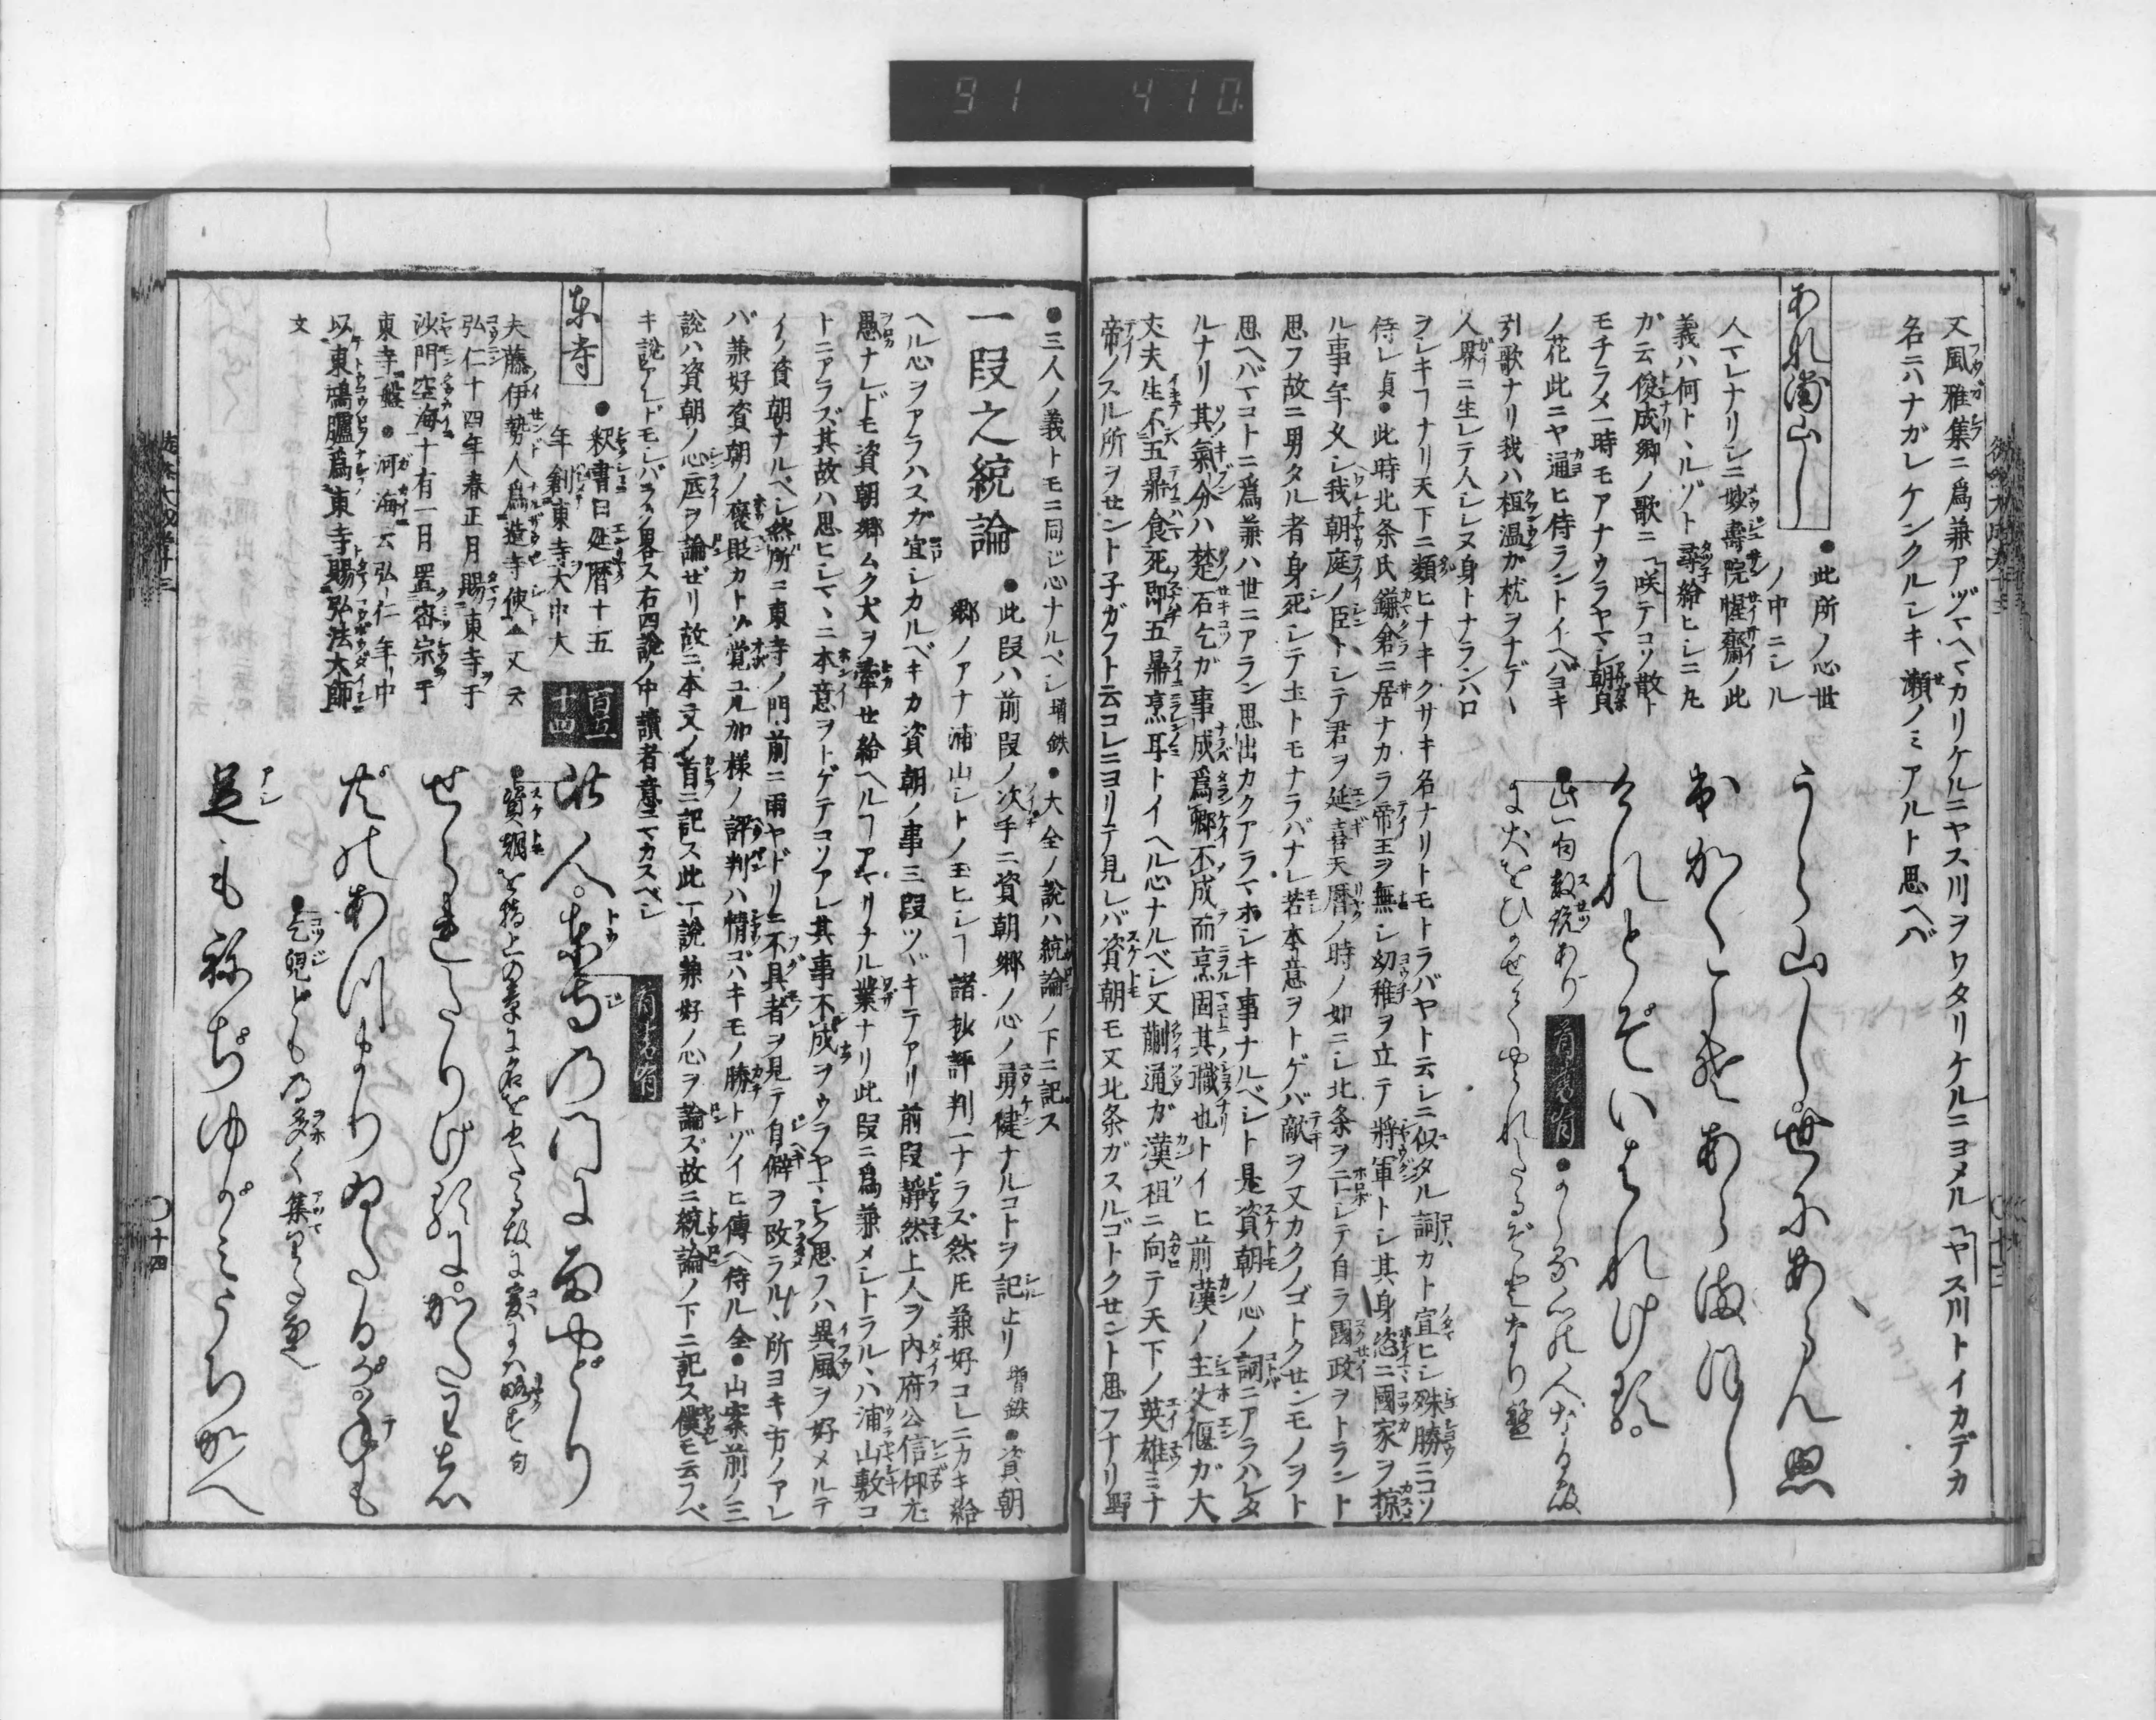 又風雅集ニ爲兼アヅマヘマカリケルニヤス川ヲワタリケルニヨメルヤス川トイカデカ
名ニハナガレケンクルシキ瀬ノミアルト思ヘバ
あれ浦山し
●此所ノ心世
ノ中ニシル
人マレナリシニ妙壽院惺齋ノ此
義ハ何トヽルゾト尋給ヒシニ丸
カ云俊成卿ノ歌ニ咲テコソ散ト
モチラメ一時モアナウラヤマシ朝皃
ノ花此ニヤ通ヒ侍ラントイヘバヨキ
引歌ナリ我ハ桓温カ枕ヲナデヽ
人界ニ生レテ人シレヌ身トナランハ口
うら山し。世にあらん思
出かくこそあらまほし
けれとぞいはれける。
●此一句数説あり
首書有
ヲシキヿナリ天下ニ類ヒナキクサキ名ナリトモトラバヤト云シニ似タル詞カト宣ヒシ殊勝ニコソ
侍レ貞●此時北条氏鎌倉ニ居ナカラ帝王ヲ無シ幼稚ヲ立テ將軍トシ其身恣ニ國家ヲ掠
ル事年久シ我朝庭ノ臣トシテ君ヲ延喜天暦ノ時ノ如ニシ北条ヲ亡シテ自ラ國政ヲトラント
思フ故ニ男タル者身死シテ土トモナラバナレ若本意ヲトゲバ敵ヲ又カクノゴトクセンモノヲト
思ヘバマコトニ爲兼ハ世ニアラン思出カクアラマホシキ事ナルベシト是資朝ノ心ノ詞ニアラハレタ
ルナリ其氣分ハ楚石乞ガ事成爲卿不成而烹固其職也トイヒ前漢ノ主父偃ガ大
丈夫生不五鼎食死即五鼎烹耳トイヘル心ナルベシ又蒯通ガ漢祖ニ向テ天下ノ英雄ミナ
帝ノスル所ヲセント子ガフト云コレニヨリテ見レバ資朝モ又北条ガスルゴトクセント思フナリ野
●三人ノ義トモニ同じ心ナルベシ増鉄●大全ノ説ハ統論ノ下ニ記ス
一段之統論
●此段ハ前段ノ次手ニ資朝郷ノ心ノ勇健ナルコトヲ記セリ増鉄●資朝
郷ノアナ浦山シトノ玉ヒシヿ諸抄評判一ナラズ然𪜈兼好コレニカキ給
ヘル心ヲアラハスガ宜シカルベキカ資朝ノ事三段ツヾキテアリ前段靜然上人ヲ内府公信仰尤
愚ナレドモ資朝郷ムク犬ヲ牽せ給ヘルヿアマリナル業ナリ此段ニ爲兼メシトラルヽハ浦山敷コ
トニアラズ其故ハ思ヒシマヽニ本意ヲトゲテコソアレ其事不成ヲウラヤマシク思フハ異風ヲ好メルテ
イノ資朝ナルベシ然所ニ東寺ノ門前ニ雨ヤドリニ不具者ヲ見テ自僻ヲ改ラルヽ所ヨキ方ノアレ
バ兼好資朝ノ褒貶カトソ覚ユル加様ノ評判ハ情ゴハキモノ勝トゾイヒ傳ヘ侍ル全●山案前ノ三
説ハ資朝ノ心底ヲ論ゼリ故ニ本文ノ首ニ記ス此一説兼好ノ心ヲ論ズ故ニ統論ノ下ニ記ス僕モ云フベ
キ説アレドモシバラク畧ス右四説ノ中讀者意ニマカスベシ
東寺
●釈書曰延暦十五
年創東寺大中大
夫藤伊勢人爲造寺使△又云
弘仁十四年春正月賜東寺于
沙門空海十有一月置密宗于
東寺盤●河海云弘仁年中
以東鴻臚爲東寺賜弘法大師
文
百五十四
首書有
此人。東寺の門に雨やどり
●資朝を指上の章に名を出たる故に爰には略す句
せられたりけるに。かたは者
共のあつまりゐたるが。手も
●乞兒どもの多く集りし也
足も祢ぢゆがミうちかへ
十四